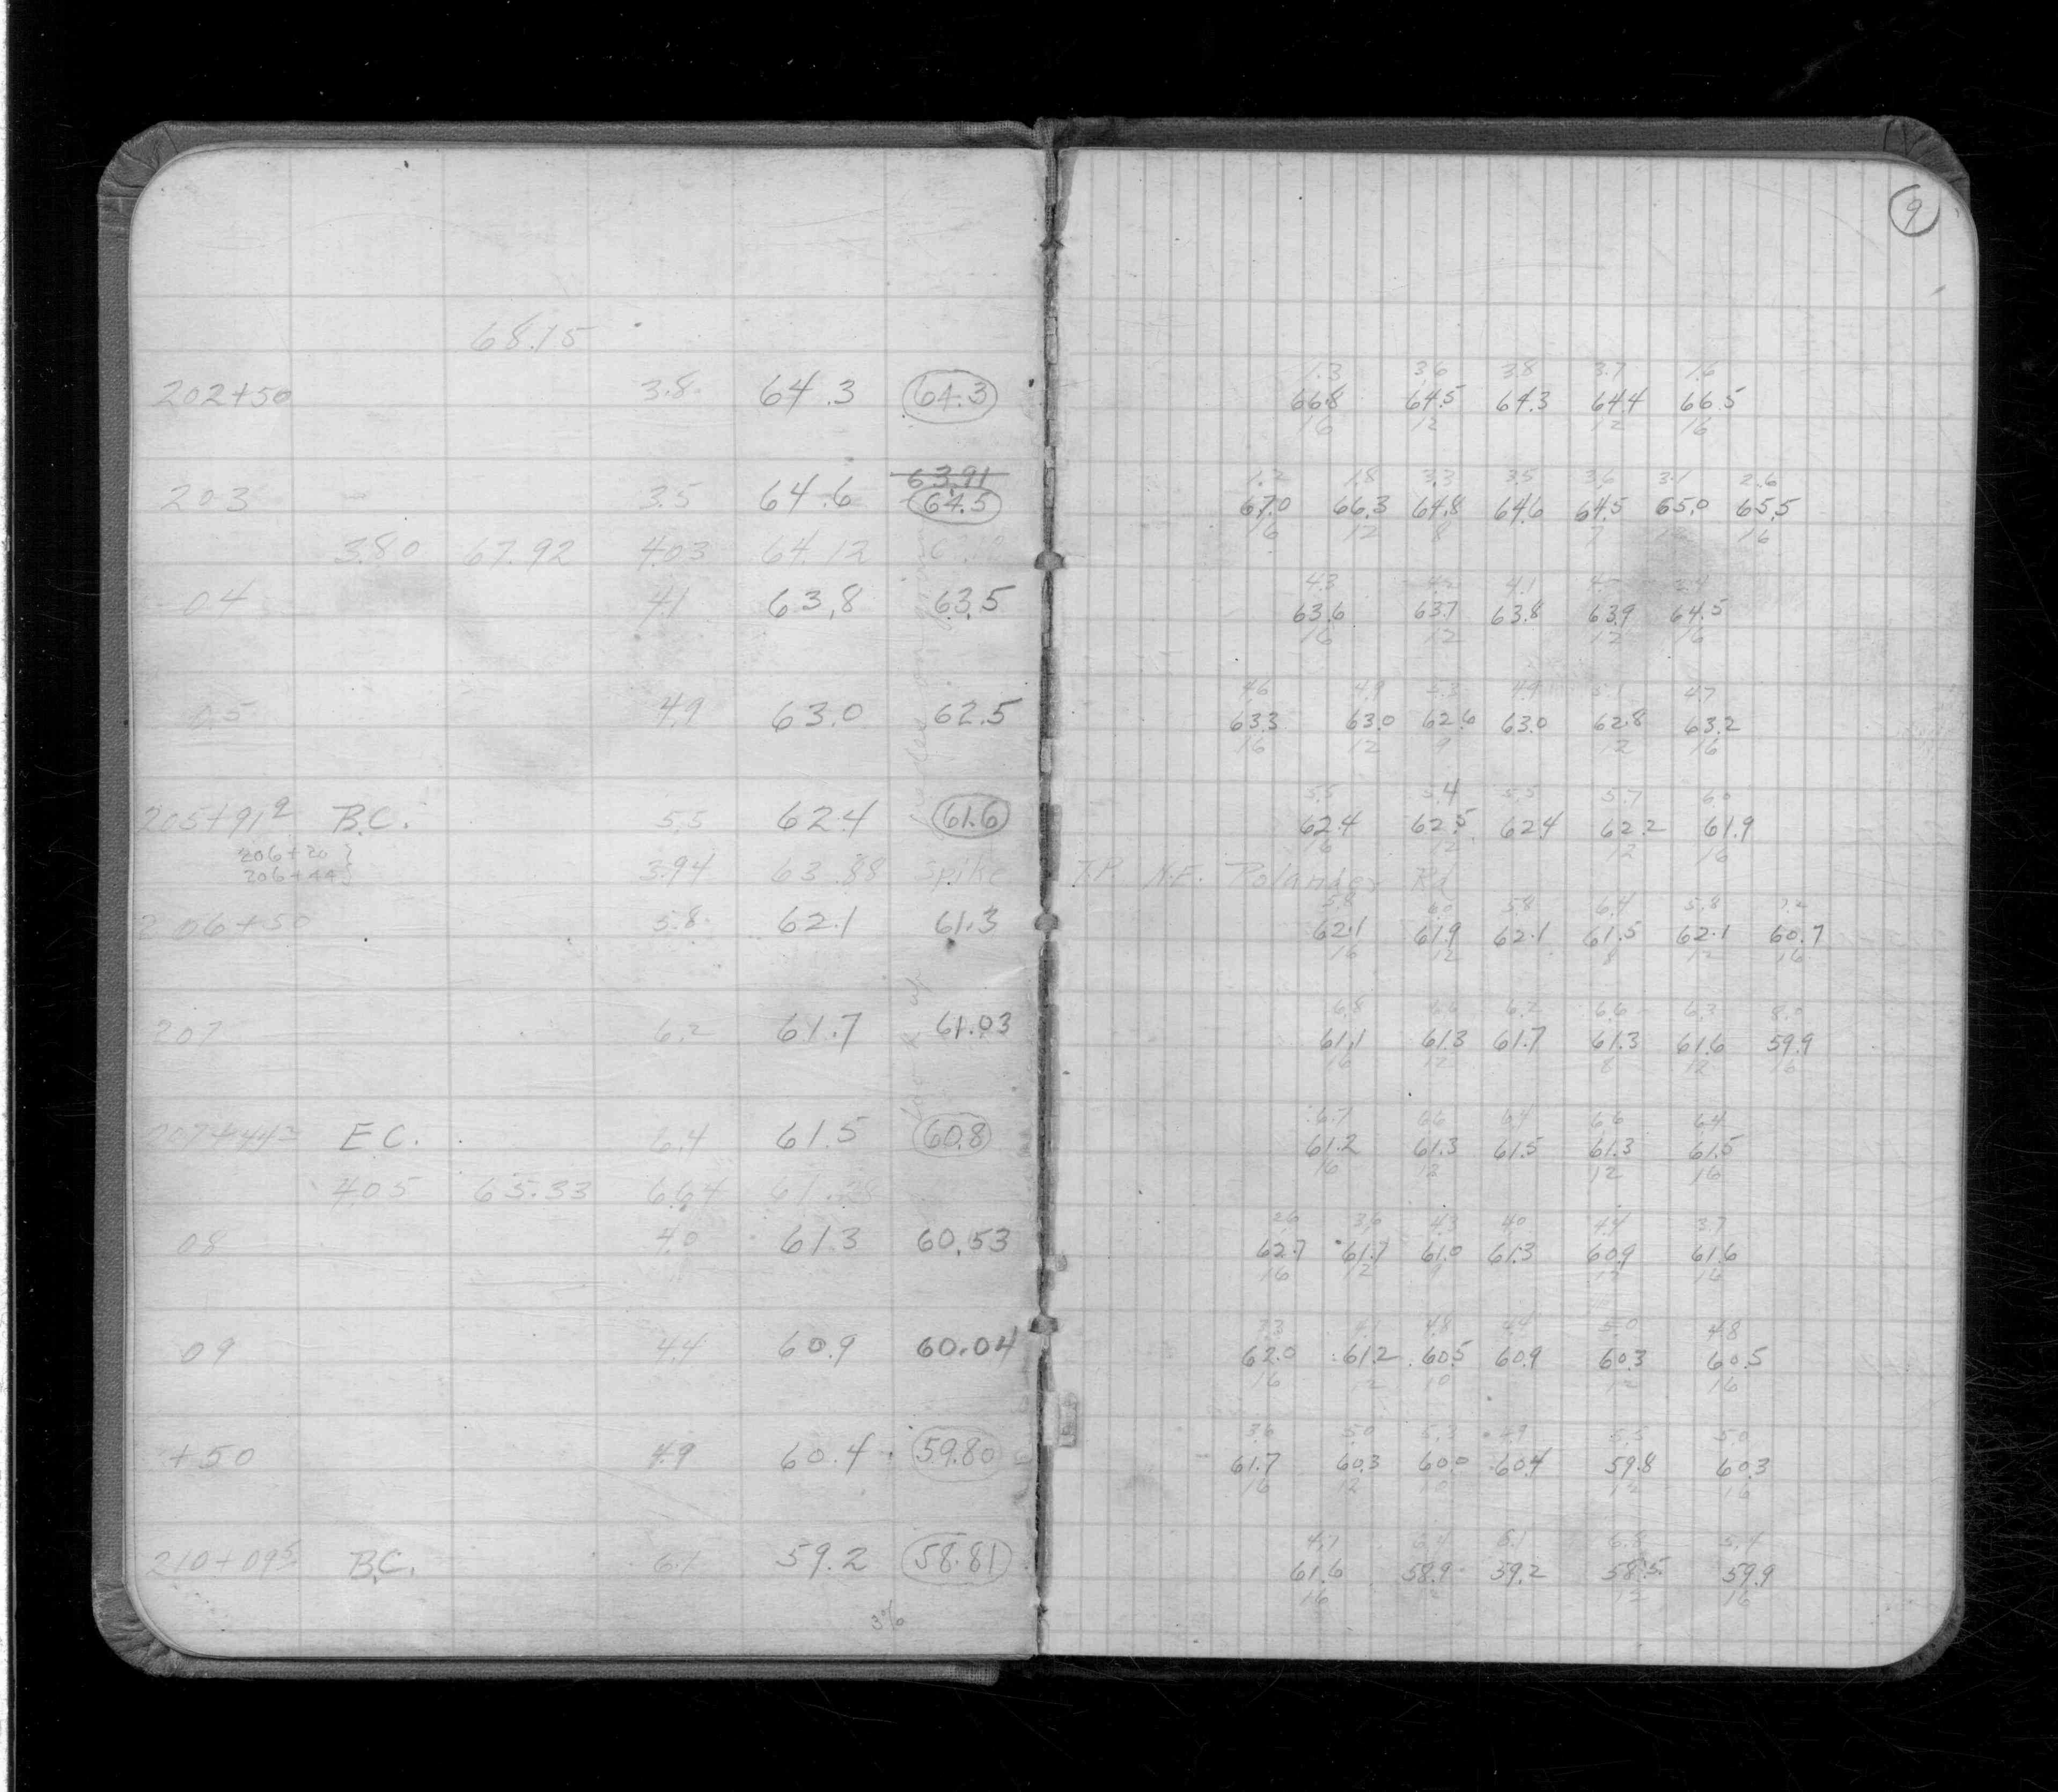 9
68.15
202+50 3.8 64.3 64.3
1.3 3.6 3.8 3.7 1.6
66.8 64.5 64.3 64.4 66.5
16 12 12 16
63.91
203 3.5 64.6 64.5
1.2 1.8 3.3 3.5 3.6 3.1 2.6
67.0 66.3 64.8 64.6 64.5 65.0 65.5
16 12 8 7 12 16
3.80 67.92 4.03 64.12
04 4.1 63.8 63.5
4.3 4.2 4.1
63.6 63.7 63.8 63.9 64.5
16 12 12 16
05 4.9 63.0 62.5
4.6 4.9 5.3 4.9 5.1 4.7
63.3 63.0 62.6 63.0 62.8 63.2
16 12 9 12 16
205+91⁹ B.C. 5.5 62.4 61.6
5.5 5.4 5.5 5.7 6.0
62.4 62.5 62.4 62.2 61.9
16 12 12 16
206+20 }
206+44 }
3.94 63.88 Spike T.P. N.E. Polander Rd
206+50 5.8 62.1 61.3
5.8 6.0 5.8 6.4 5.8 7.2
62.1 61.9 62.1 61.5 62.1 60.7
16 12 8 12 16
207 6.2 61.7 61.03
6.8 6.6 6.2 6.6 6.3 8.0
61.1 61.3 61.7 61.3 61.6 59.9
16 12 8 12 16
207+44² E.C. 6.4 61.5 60.8
6.7 6.6 6.4 6.6 6.4
61.2 61.3 61.5 61.3 61.5
16 12 12 16
4.05 65.33 6.64 61.28
08 4.0 61.3 60.53
2.6 3.6 4.3 4.0 4.4 3.7
62.7 61.7 61.0 61.3 60.9 61.6
16 12 12 16
09 4.4 60.9 60.04
3.3 4.1 4.8 4.4 5.0 4.8
62.0 61.2 60.5 60.9 60.3 60.5
16 12 10 12 16
+50 4.9 60.4 59.80
3.6 5.0 5.3 4.9 5.5 5.0
61.7 60.3 60.0 60.4 59.8 60.3
16 12 10 12 16
210+09⁵ B.C. 6.1 59.2 58.81
4.1 6.4 6.1 6.8 5.4
61.6 58.9 59.2 58.5 59.9
16 12 12 16
3%